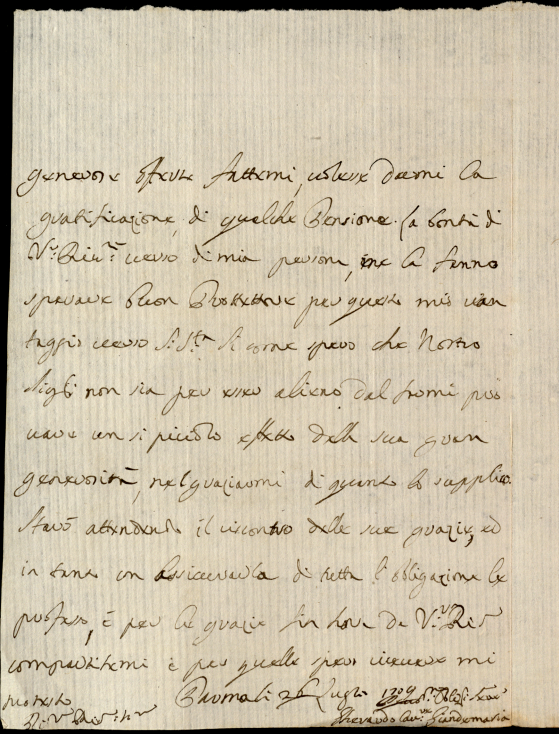 generose offerte fattemi, volere darmi la
gratificazione, di qualche Pensione. La bontà di
V.ª Riv.ª verso di mia persona, me la fanno
sperare buon Protettore per questo mio van
taggio verso S: S.tà si come spero che Nostro
non sia per esser alieno dal farmi pro
vare un si picciolo effetto della sua gran
generosità, nel graziarmi di quanto lo supplico.
Starò attendendo il riscontro delle sue grazie, ed
in tanto un di tutta l'obligazione le
professo, è per le grazie fin hora da V.ª Riv.ª
compartitemi è per quelle spero ricevere mi
protesto Parma li 26 Luglio 1709